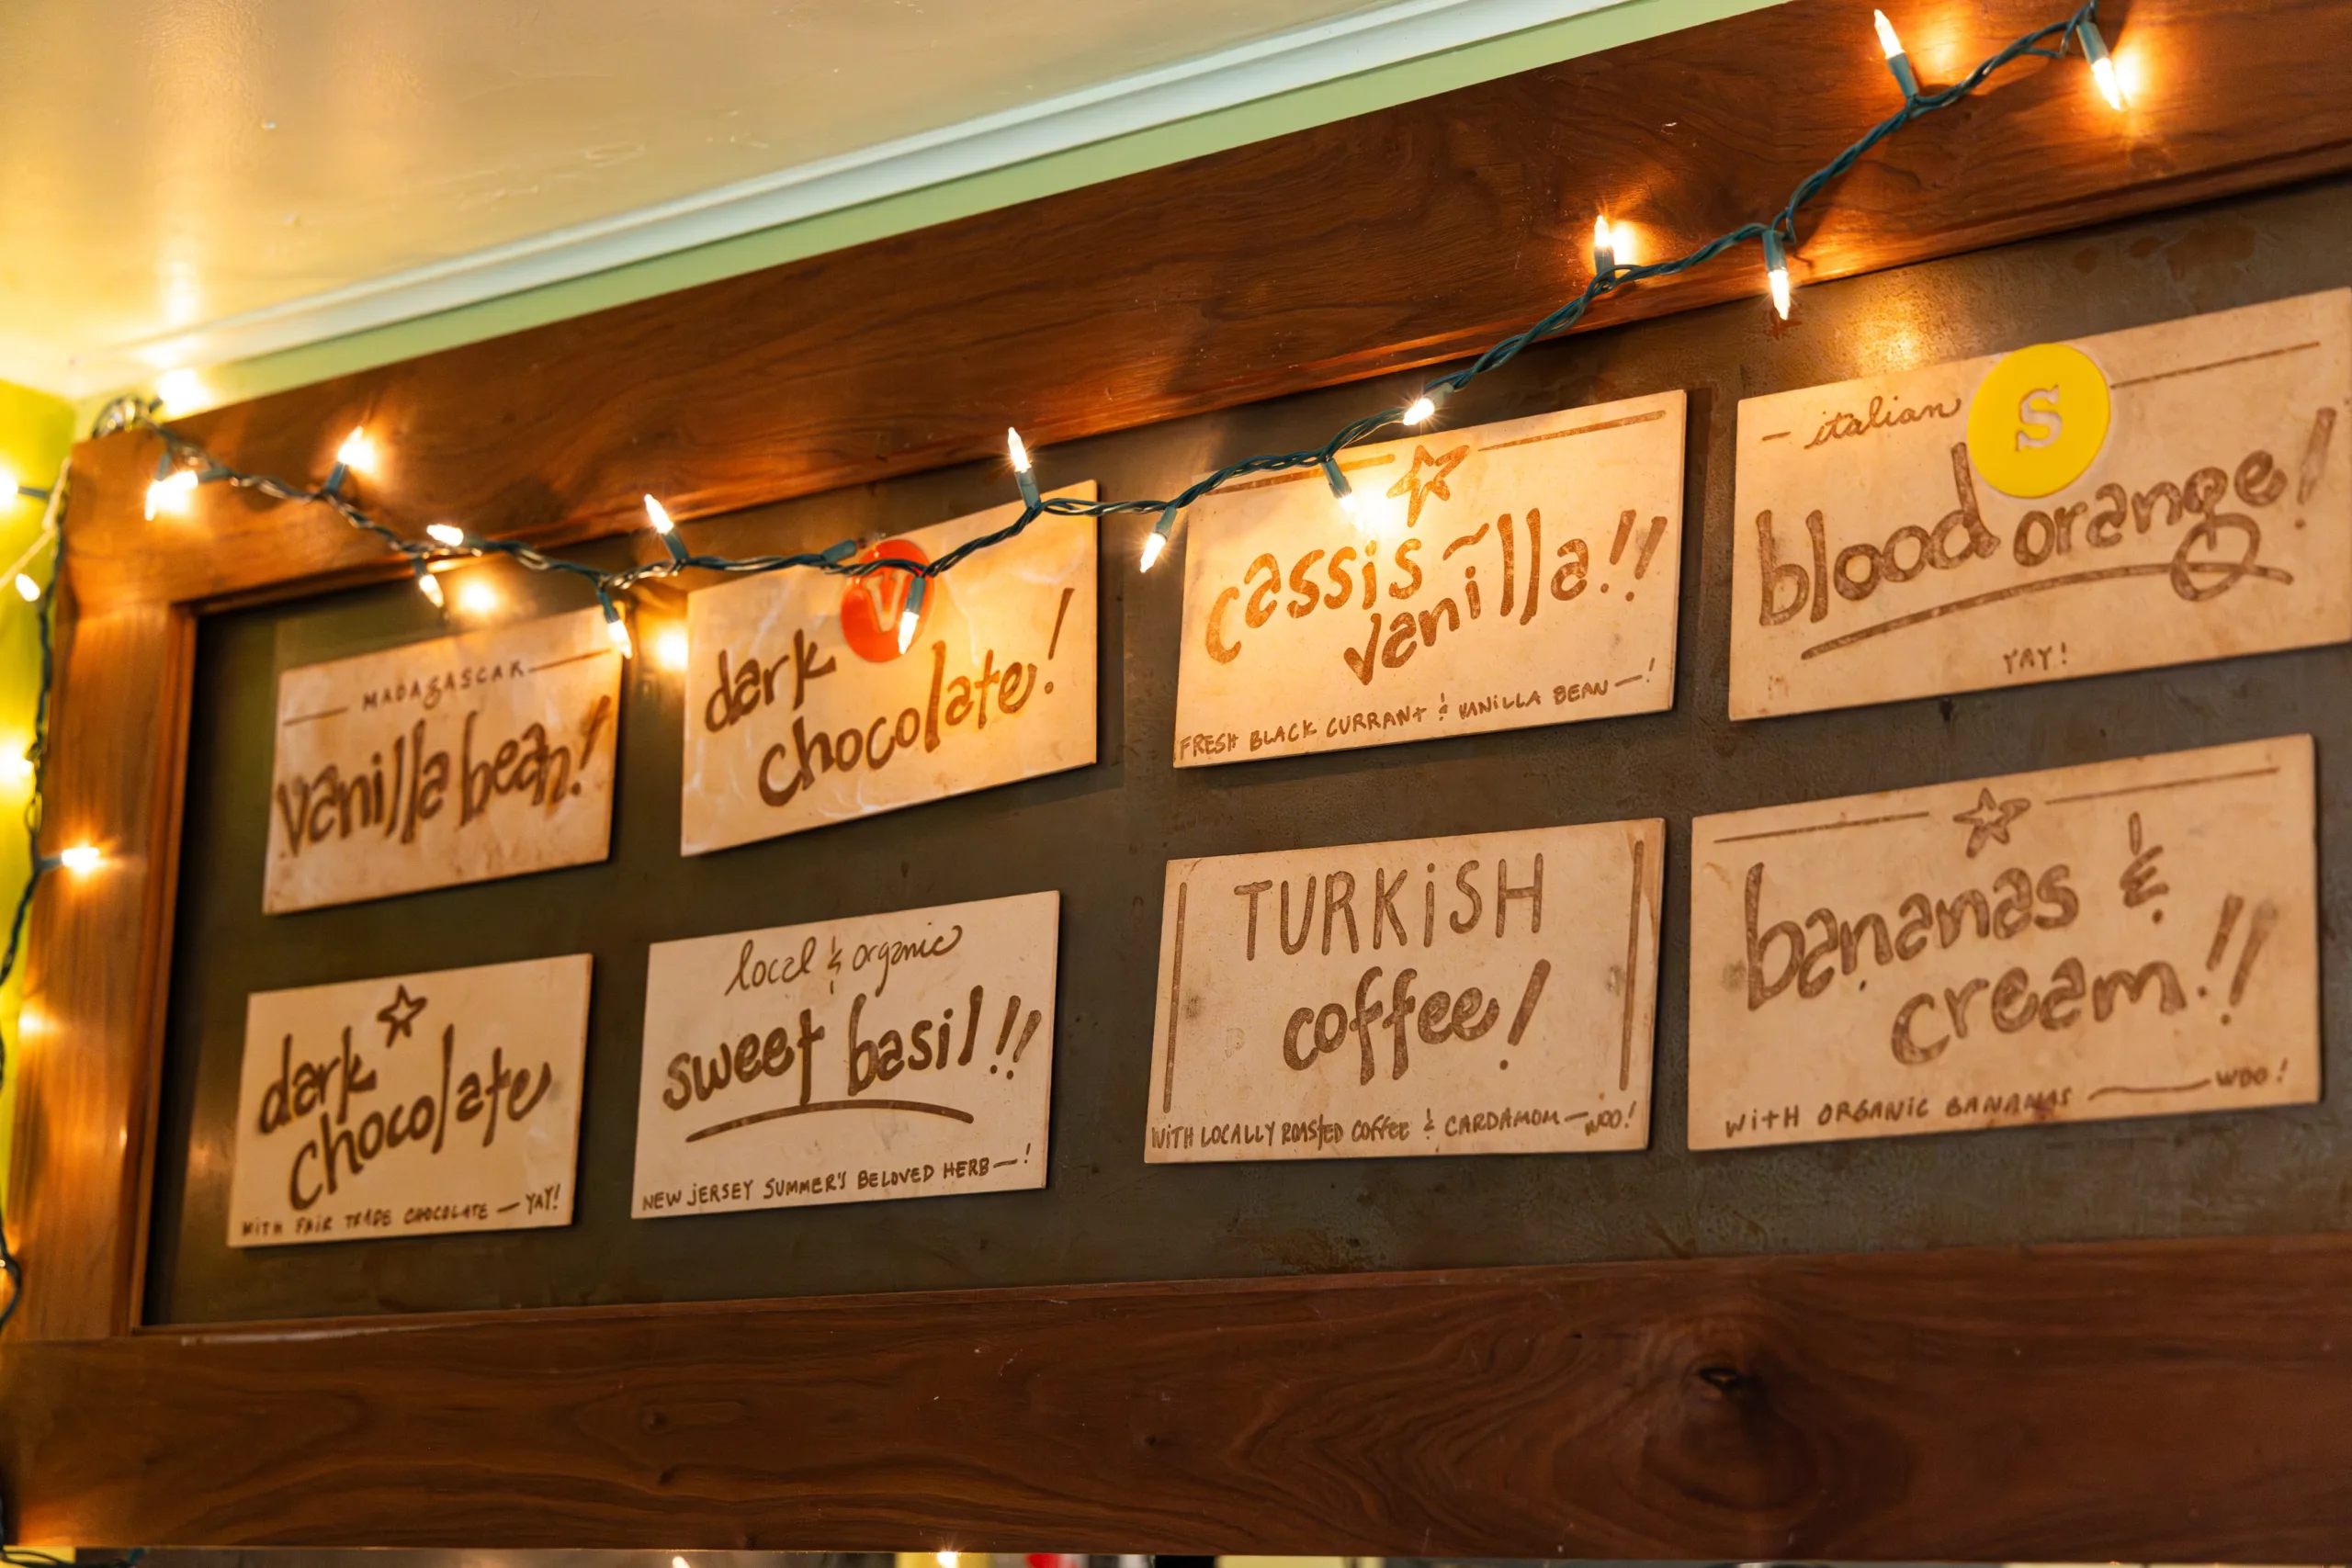 MADAGASCAR
vanilla bean!
V
dark
chocolate!
cassis ~
vanilla!!
FRESH BLACK CURRANT & VANILLA BEAN —!
— italian
S
blood orange!
YAY!
dark
chocolate
WITH FAIR TRADE CHOCOLATE — YAY!
local & organic
sweet basil!!
NEW JERSEY SUMMER'S BELOVED HERB —!
TURKISH
coffee!
WITH LOCALLY ROASTED COFFEE & CARDAMOM — WOO!
bananas &
cream!!
WITH ORGANIC BANANAS — WOO!